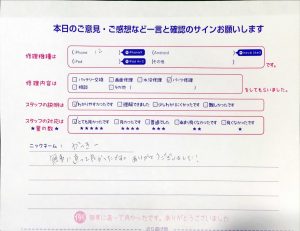 本日のご意見・ご感想など一言と確認のサインお願いします
修理機種は
iPhone 12
Android
iPad
その他
です。
修理内容は
バッテリー交換 画面修理 水没修理 パーツ修理
相談 その他
をしてもらいました。
スタッフの説明は
わかりやすかったです 理解できました 少しわかりづらかったです 難しかったです
スタッフの対応は
★星の数★
とても良かったです 良かったです 普通でした あまり良くなかったです 良くなかったです
★★★★★ ★★★★ ★★★ ★★ ★
ニックネーム：
ありがとうございました！